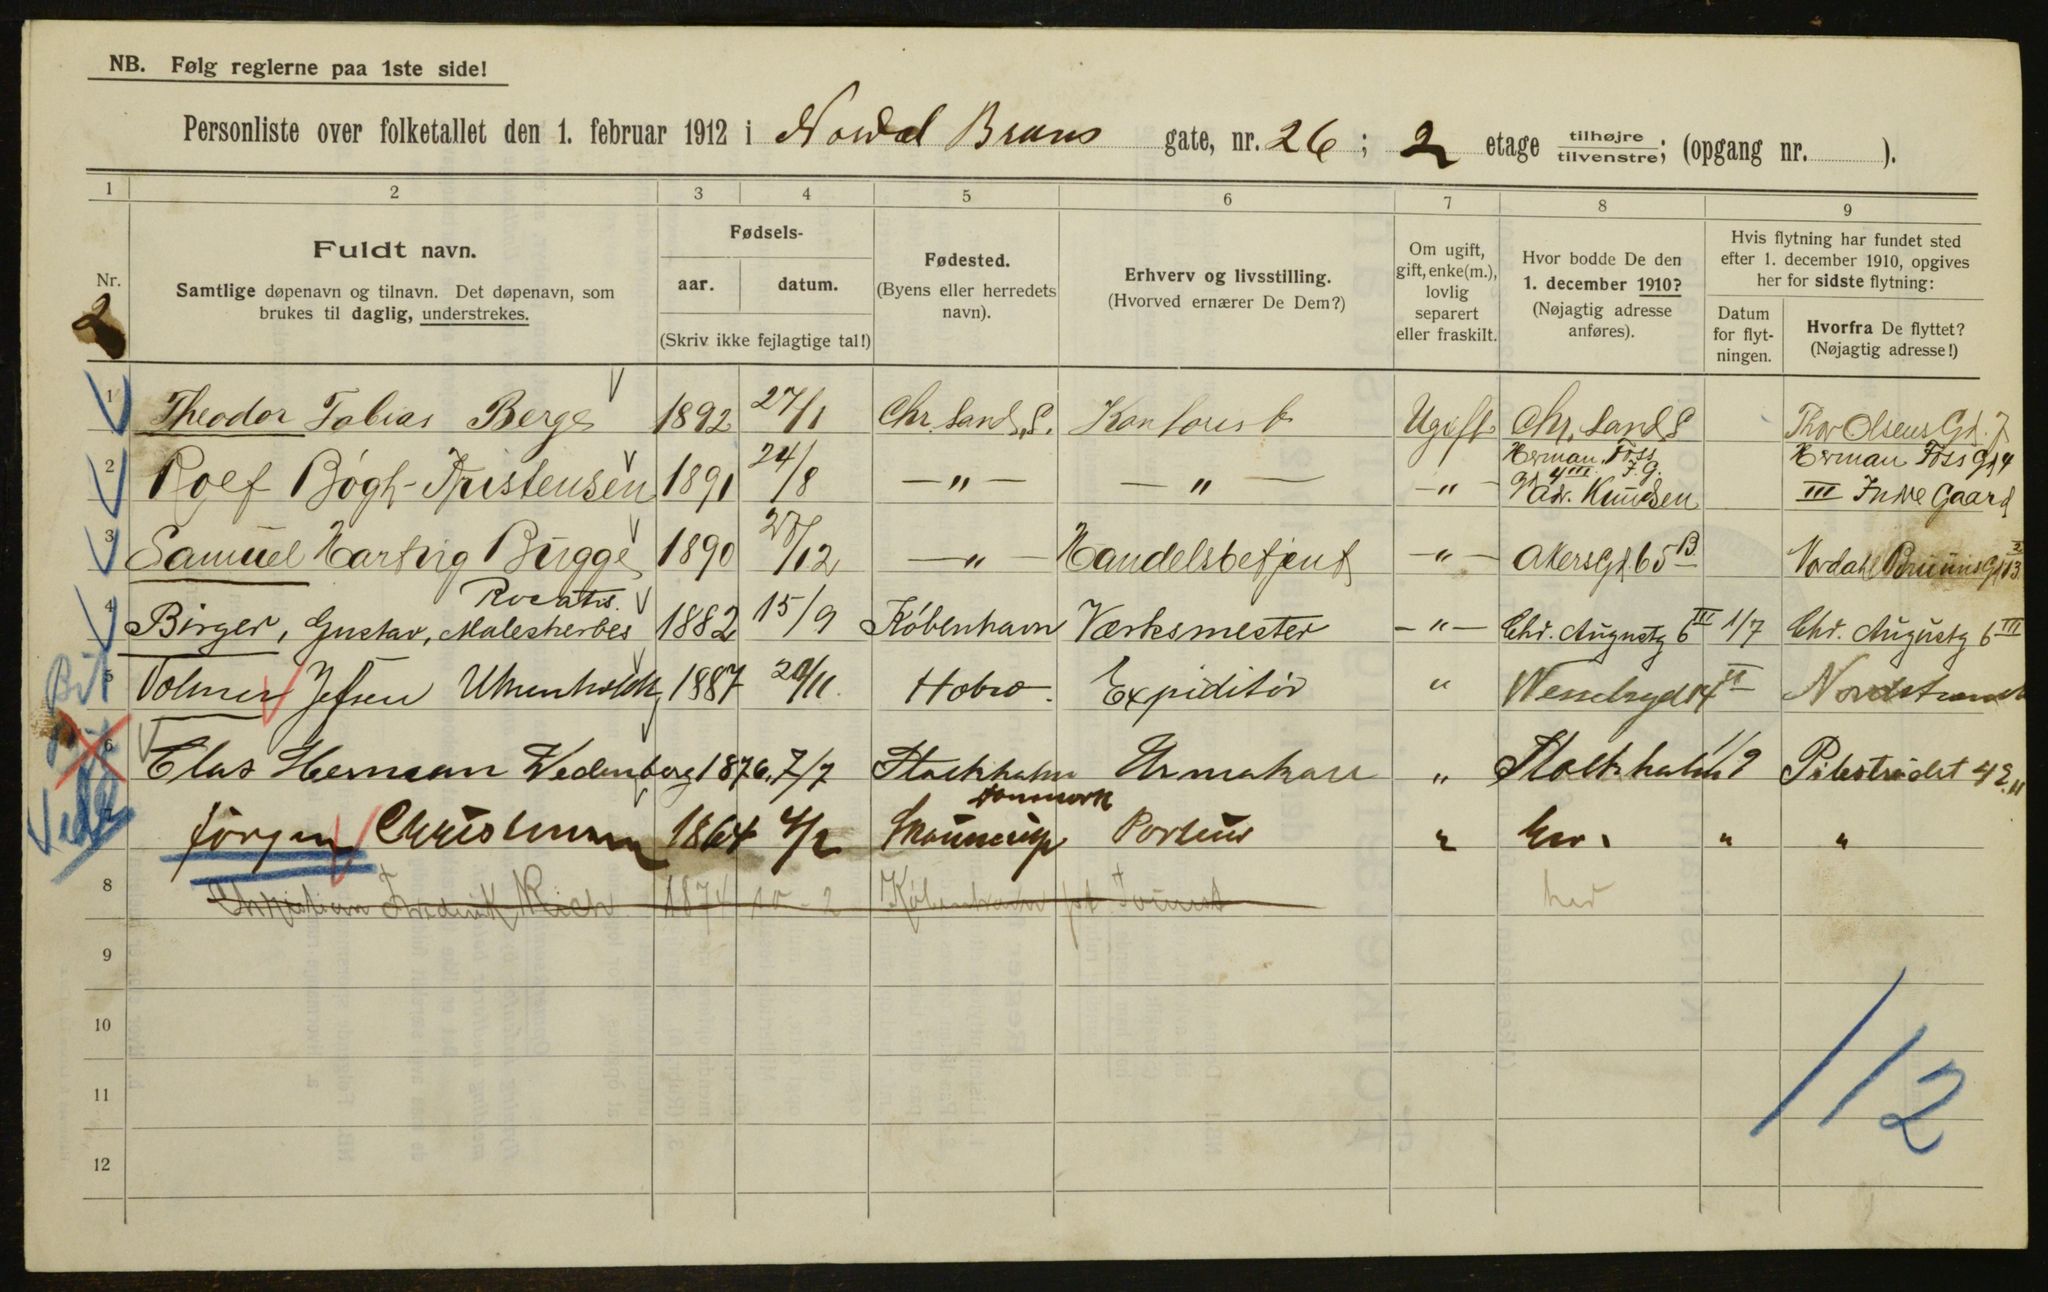 NB. Følg reglerne paa 1ste side!
Personliste over folketallet den 1. februar 1912 i Nordal Bruns gate, nr. 26; 2 etage tilhøjre/tilvenstre; (opgang nr. ).
1 2 3 4 5 6 7 8 9
Nr. 2
Fuldt navn.
Samtlige døpenavn og tilnavn. Det døpenavn, som
brukes til daglig, understrekes.
Fødsels-
aar. datum.
(Skriv ikke fejlagtige tal!)
Fødested.
(Byens eller herredets
navn).
Erhverv og livsstilling.
(Hvorved ernærer De Dem?)
Om ugift,
gift, enke(m.),
lovlig
separert
eller fraskilt.
Hvor bodde De den
1. december 1910?
(Nøjagtig adresse
anføres).
Hvis flytning har fundet sted
efter 1. december 1910, opgives
her for sidste flytning:
Datum
for flyt-
ningen.
Hvorfra De flyttet?
(Nøjagtig adresse!)
1 Theodor Tobias Berge 1892 27/1 Chr. Sand. S. Kontorist Ugift Chr. Sand S Thor Olsens Gd. 7
2 Rolf Bógh-Kristensen 1891 24/8 —"— —"— —"— Herman Foss Gd 4 III I. G. Adr. Knudsen Herman Foss Gd 4 III Indre Gaard
3 Samuel Hartvig Bugge 1890 28/12 —"— Handelsbetjent —"— Akers Gd. 65 B Nordahl Bruuns Gd 13
4 Birger, Gustav, Malesherbes 1882 15/9 København Værksmester —"— Chr. Augustg 6 III 1/7 Chr. Augustg 6 III
5 Volmer Jefsen 1887 20/11. Hobro. Expiditör " Wesselsgd 14 II Nordstrand
6 Clas Herman Wedenberg 1876. 7/7 Stockholm Urmakare " Stockholm 1/9 Pilestrædet 4
7 Jörgen Christensen 1864 4/2 Danmark Portier " her. " "
8 Christian Fredrik Reich 1874 10-2 København pt Turist her
9
10
11
12
112